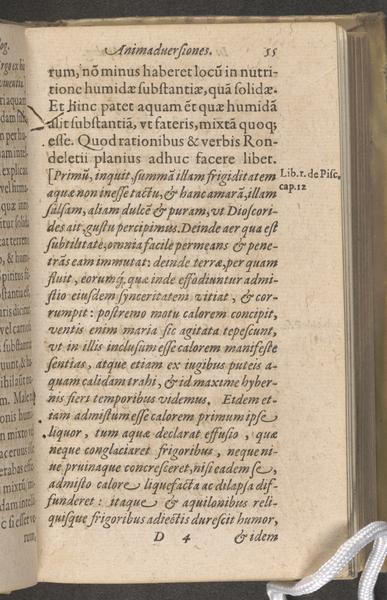 Animadversiones. 55
rum, nõ minus haberet locũ in nutri-
tione humidæ substantiæ, quã solidæ.
Et hinc patet aquam ẽt quæ humidã
alit substantiã, vt fateris, mixtã quoq;
esse. Quod rationibus & verbis Ron-
deletii planius adhuc facere libet.
[Primũ, inquit, summã illam frigiditatem
Lib. 1. de Pisc.
cap. 12
aquæ non inesse tactu, & hanc amarã, illam
salsam, aliam dulcẽ & puram, vt Dioscori-
des ait, gustu percipimus. Deinde aer qua est
subtilitate, omnia facile permeans & pene-
trãs eam immutat: deinde terræ, per quam
fluit, eorumq́, quæ inde effodiuntur admi-
stio eiusdem synceritatem vitiat, & cor-
rumpit: postremo motu calorem concipit,
ventis enim maria sic agitata tepescunt,
vt in illis inclusum esse calorem manifeste
sentias, atque etiam ex iugibus puteis a-
quam calidam trahi, & id maxime hyber-
nis fieri temporibus videmus. Eidem et-
iam admistum esse calorem primum ipse
liquor, tum aquæ declarat effusio, quæ
neque conglaciaret frigoribus, neque ni-
ue pruinaque concresceret, nisi eadem se,
admisto calore liquefacta ac dilapsa dif-
funderet: itaque & aquilonibus reli-
quisque frigoribus adiectis durescit humor,
D 4 & idem